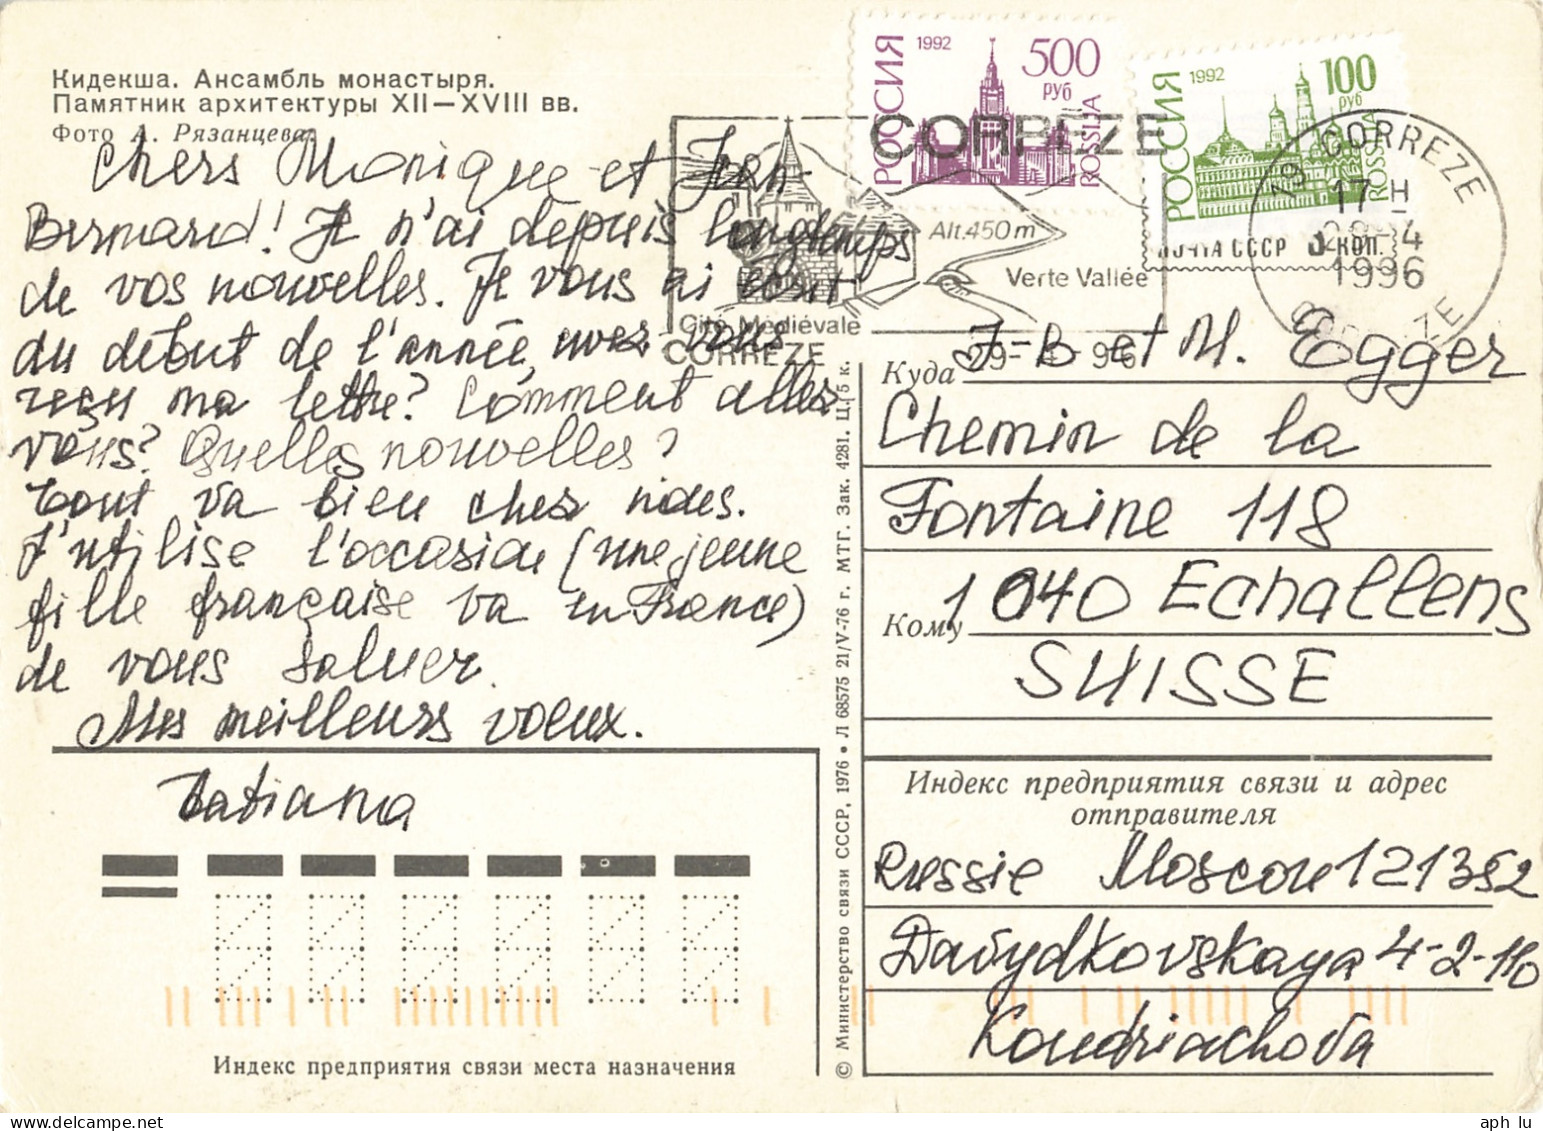 Кидекша. Ансамбль монастыря.
Памятник архитектуры XII—XVIII вв.
Фото А. Рязанцева.
Chers Monique et Jean-
Bernard! Je n'ai depuis longtemps
de vos nouvelles. Je vous ai écrit
au début de l'année, avez-vous
reçu ma lettre? Comment allez
vous? Quelles nouvelles?
Tout va bien chez nous.
J'utilise l'occasion (une jeune
fille française va en France)
de vous saluer.
Mes meilleurs voeux.
Tatiana
Индекс предприятия связи места назначения
© Министерство связи СССР, 1976 • Л 68575 21/V-76 г. МТГ. Зак. 4281. Ц. 5 к.
РОССИЯ 1992 500 руб ROSSIJA
РОССИЯ 1992 100 руб ROSSIJA
ПОЧТА СССР КОП.
CORREZE
Alt.450 m
Verte Vallée
Cité Médiévale
CORREZE
19 CORREZE
17 H
1996
CORREZE
Куда J-B et M. Egger
Chemin de la
Fontaine 118
Кому 1040 Echallens
SUISSE
Индекс предприятия связи и адрес
отправителя
Russie Moscou 121352
Davydkovskaya 4-2-110
Kondriachova
aph lu